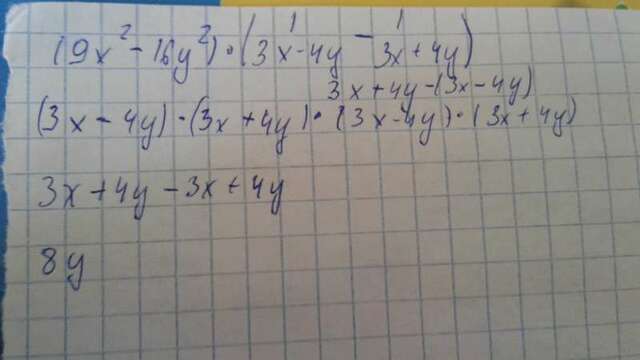 1 1
(9x² - 16y²) · (3x - 4y - 3x + 4y)
3x + 4y - (3x - 4y)
(3x - 4y) · (3x + 4y) · (3x - 4y) · (3x + 4y)
3x + 4y - 3x + 4y
8y